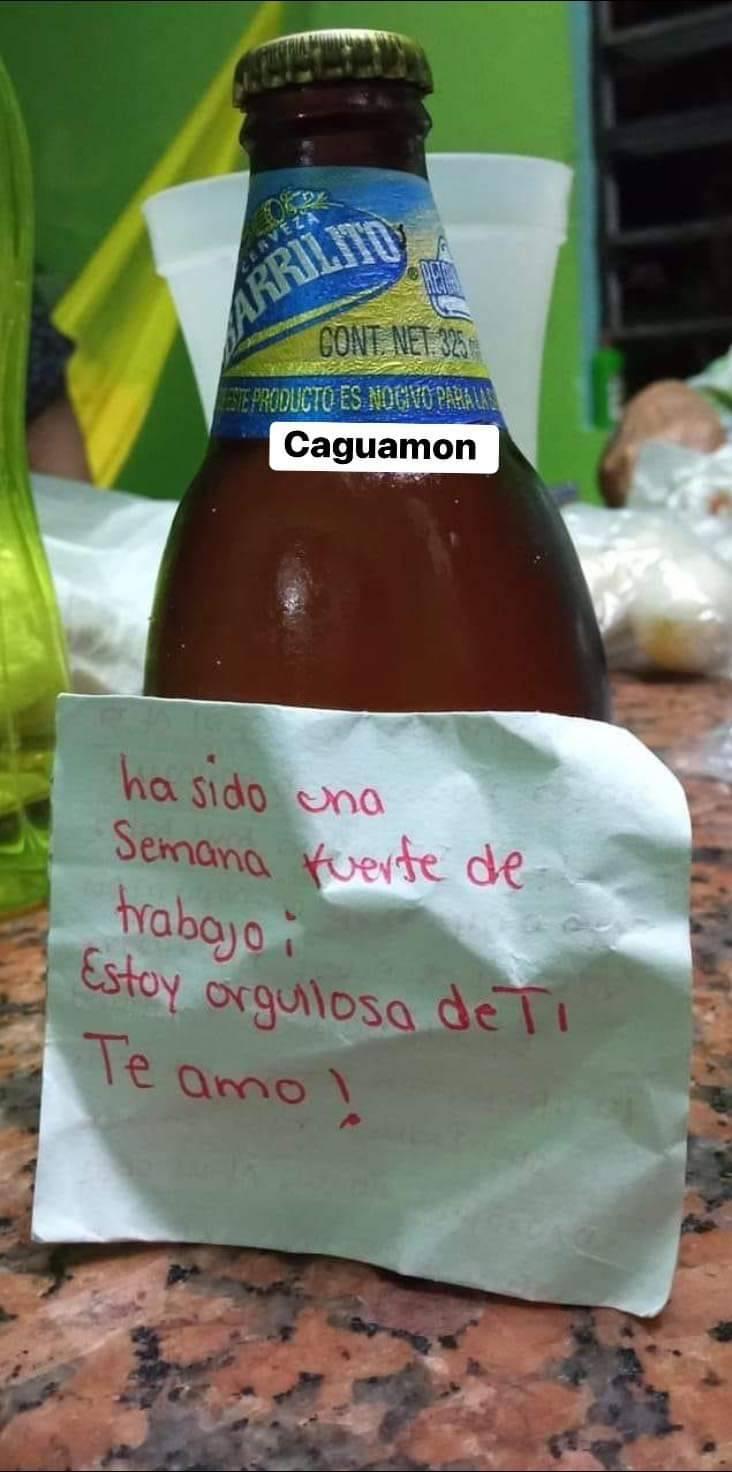 CERVEZA
BARRILITO
CONT. NET. 325
ESTE PRODUCTO ES NOCIVO PARA LA
Caguamon
ha sido una
Semana fuerte de
trabajo;
Estoy orgullosa de Ti
Te amo!